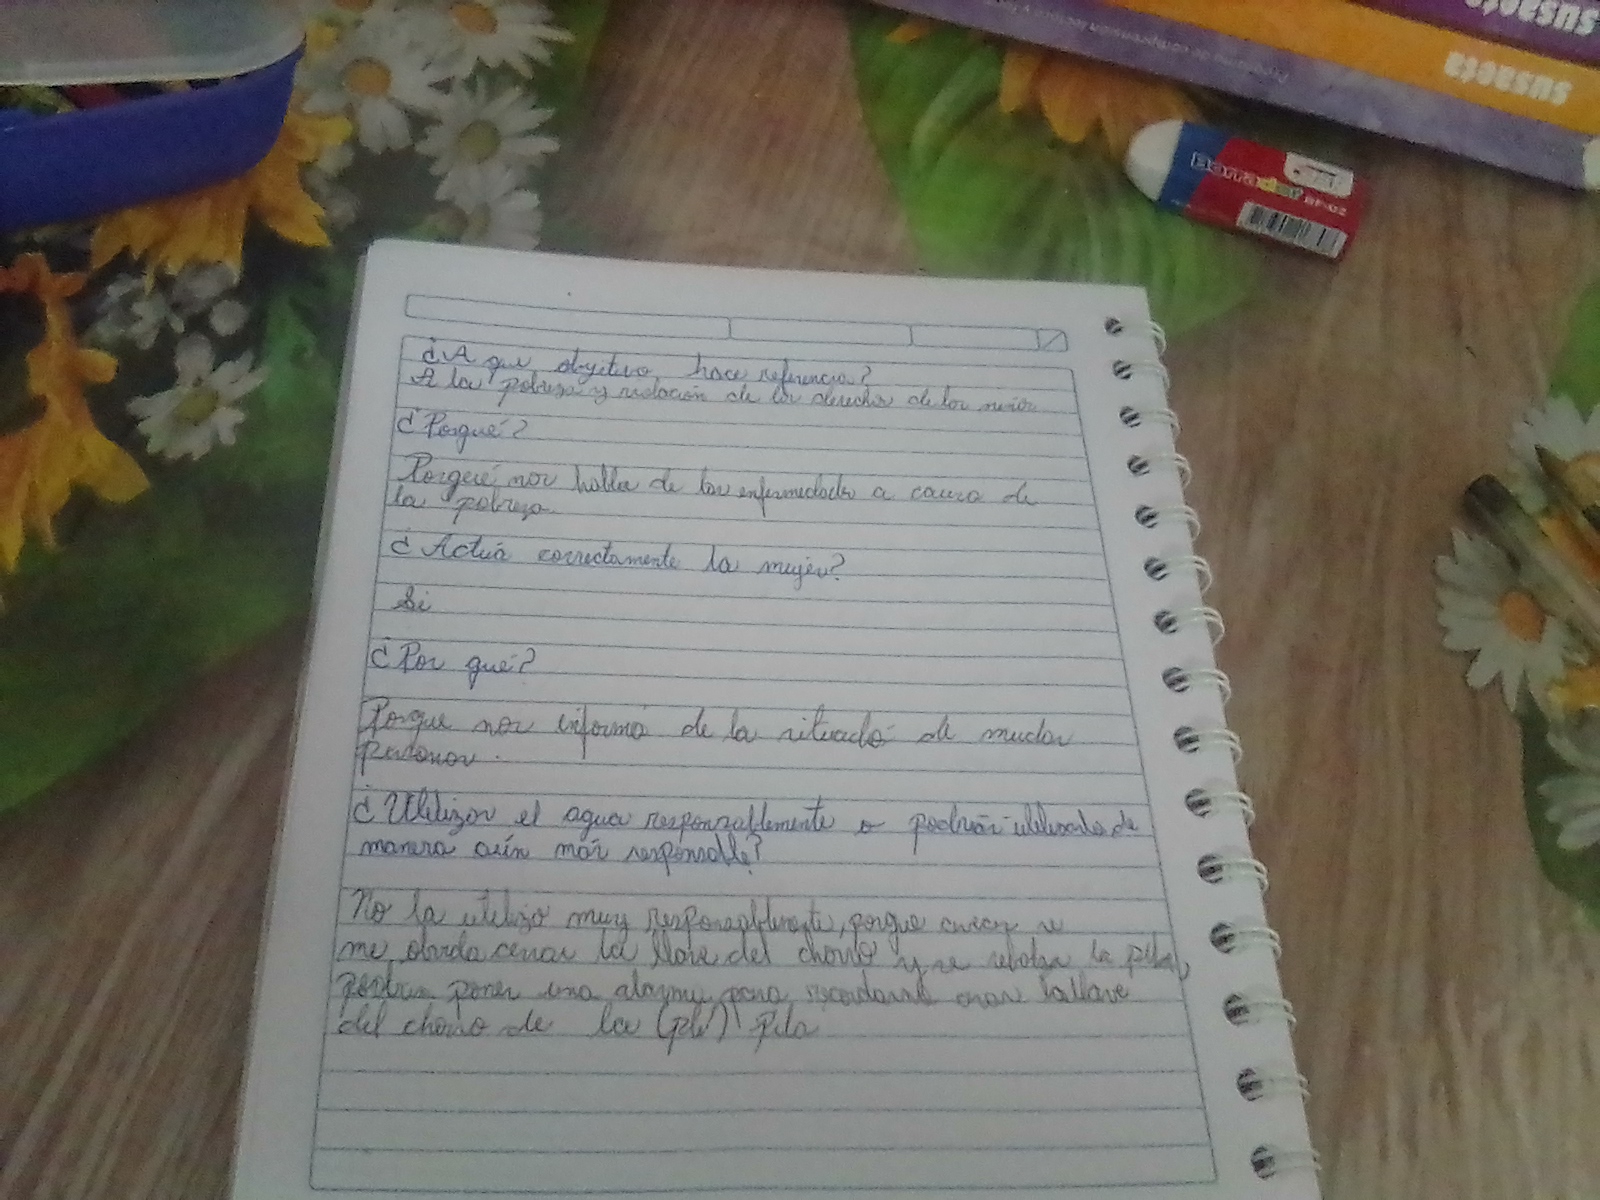 susaeta
susaeta
Programa de comprensión lectora y
Borrador
BP-02
¿A que objetivo hace referencia?
A la pobreza y violación de los derechos de los niños
¿Porqué?
Porqué nos habla de las enfermedades a causa de
la pobreza
¿Actuá correctamente la mujér?
Si
¿Por qué?
Porque nos informó de la situació de muchas
personas.
¿Utilizas el agua responsablemente o podrías utilizarla de
manera aún más responsable?
No la utilizo muy responsablemente, porque aveces se
me olvida cerrar la llave del chorro y se rebalsa la pila,
podria poner una alarma para recordarme cerrar la llave
del chorro de la (pli) pila